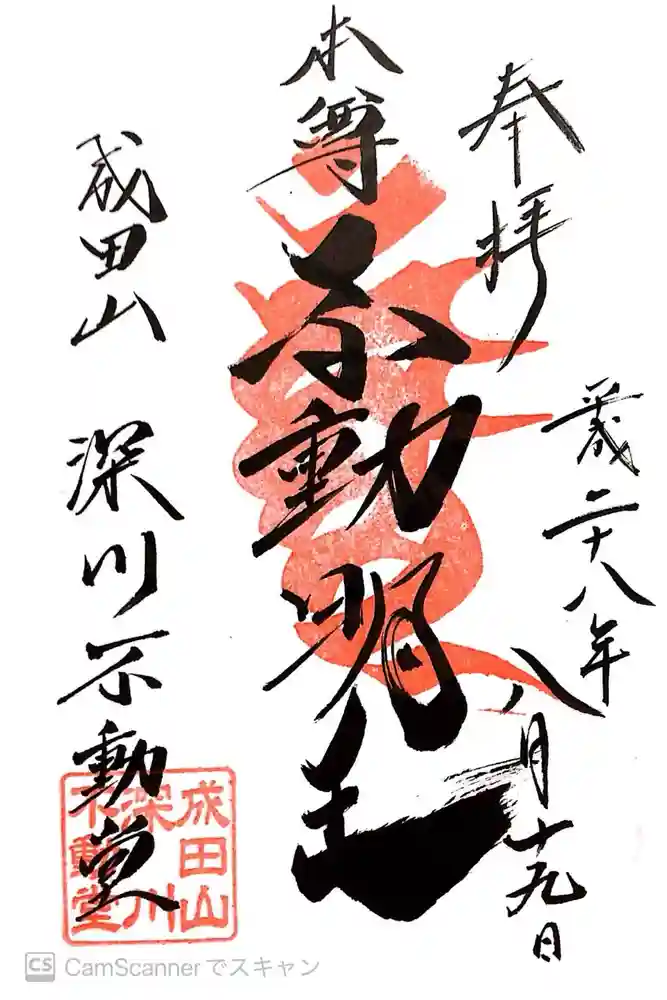 奉拝
平成二十八年八月十九日
本尊
不動明王
成田山 深川不動堂
成田山
深川
不動堂
CS CamScanner でスキャン